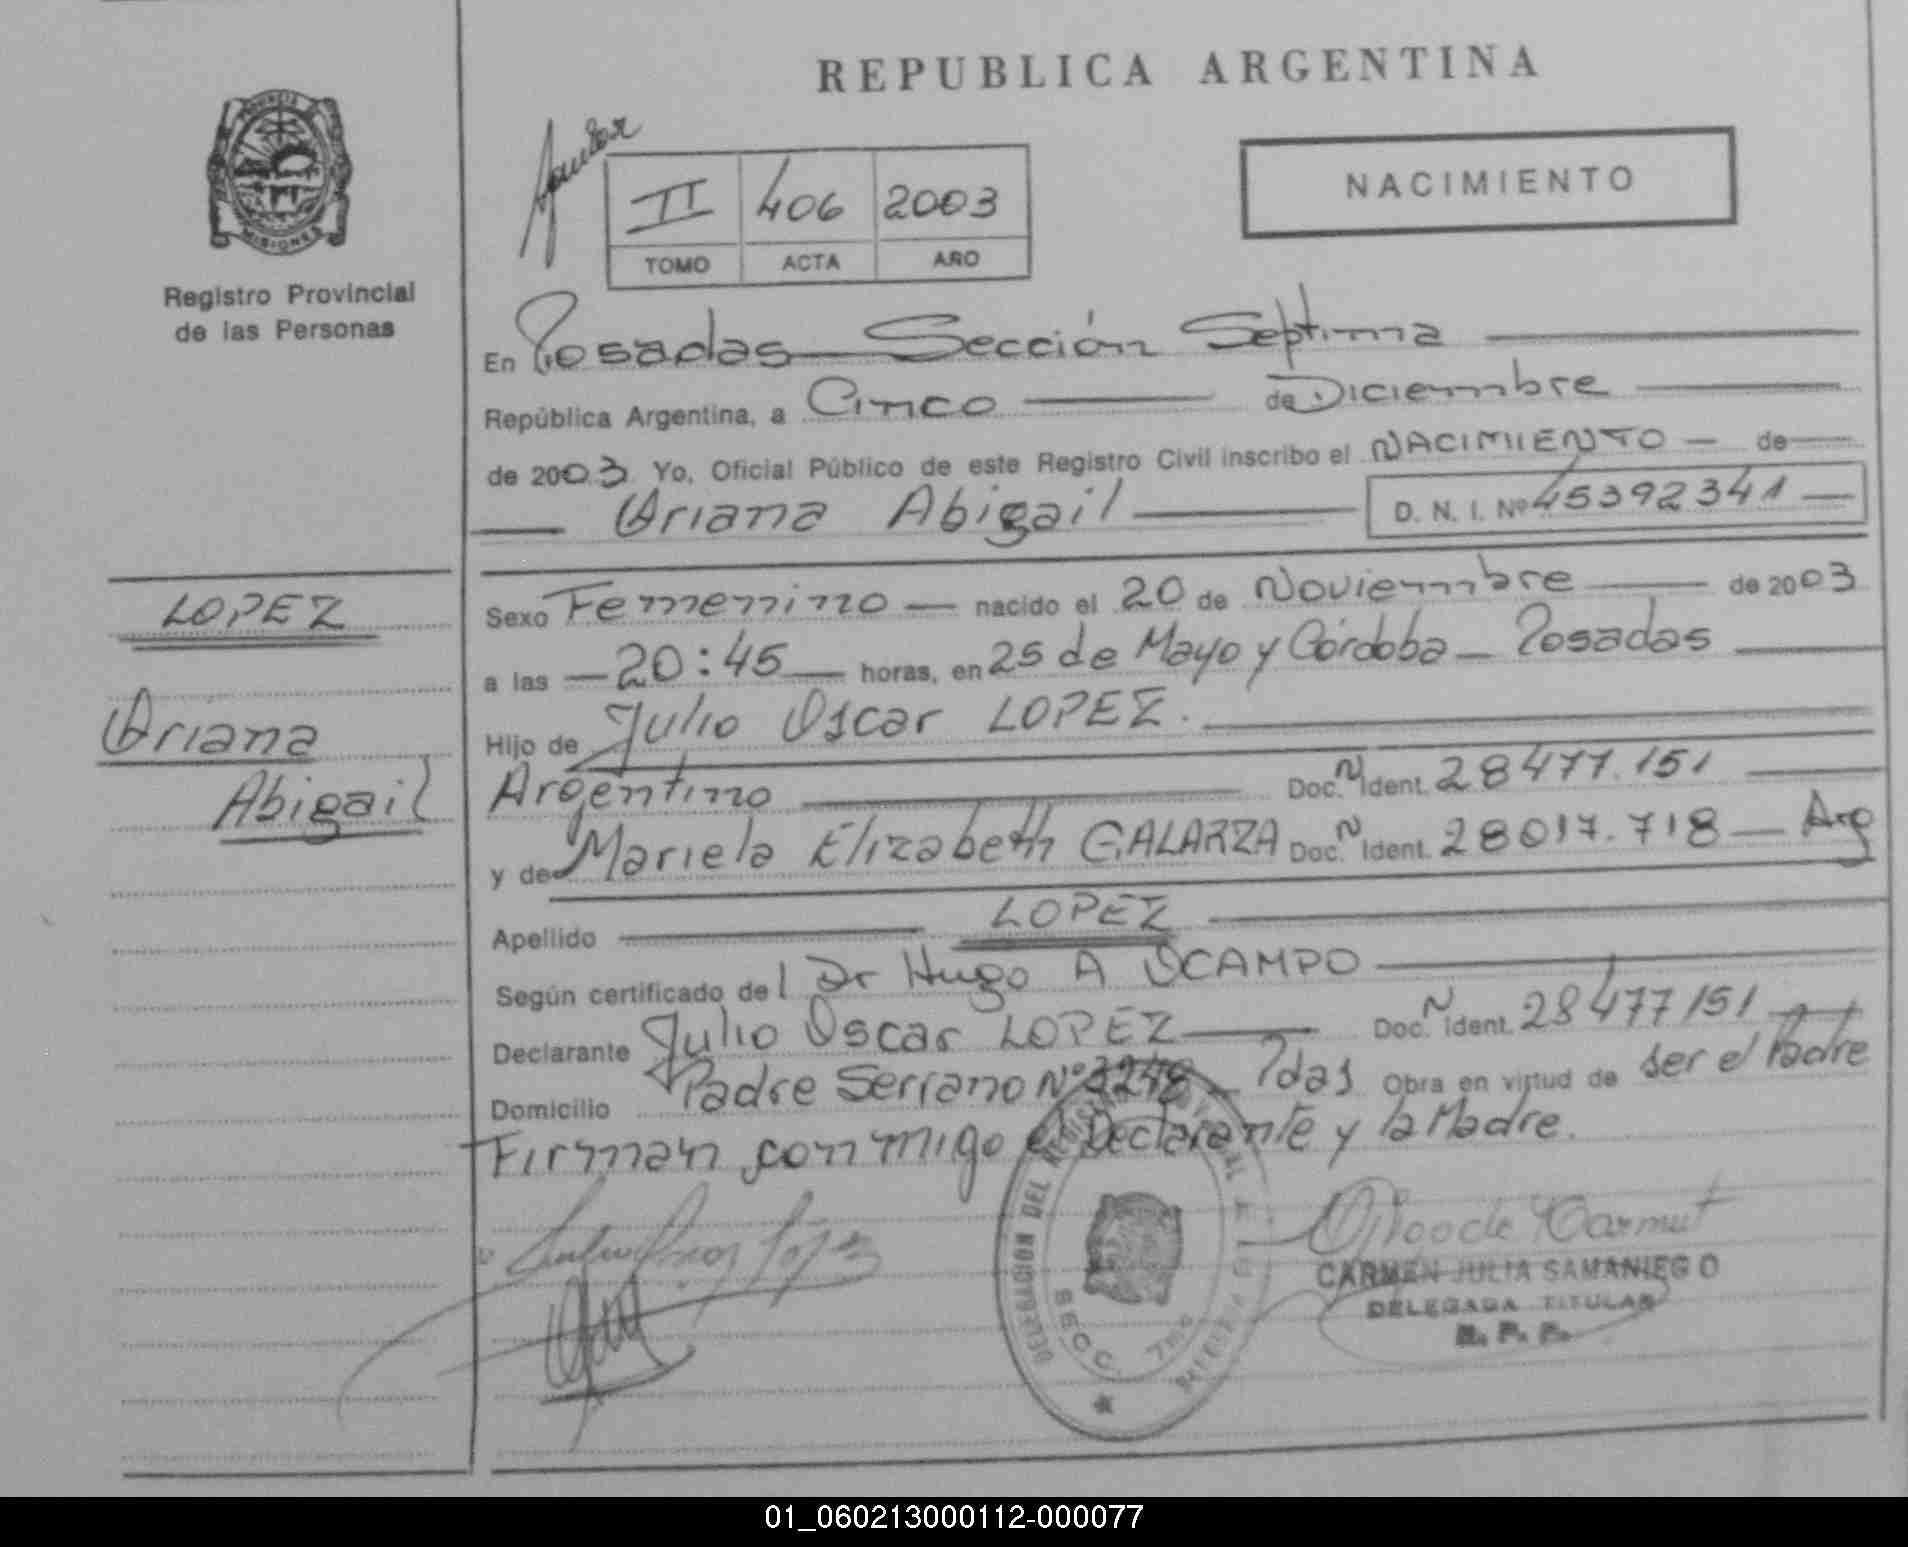 REPUBLICA ARGENTINA
MISIONES
Registro Provincial
de las Personas
II 406 2003
TOMO ACTA AÑO
NACIMIENTO
En Posadas Sección Septima
República Argentina, a Cinco de Diciembre
de 2003 Yo, Oficial Público de este Registro Civil inscribo el NACIMIENTO de
Oriana Abigail D. N. I. Nº 45392341
LOPEZ
Oriana
Abigail
Sexo Femenino nacido el 20 de Noviembre de 2003
a las 20:45 horas, en 25 de Mayo y Córdoba - Posadas
Hijo de Julio Oscar LOPEZ.
Argentino Doc. N Ident. 28477.151
y de Mariela Elizabeth GALARZA Doc. N Ident. 28017.718 - Arg
Apellido LOPEZ
Según certificado del Dr Hugo A OCAMPO
Declarante Julio Oscar LOPEZ Doc. N Ident. 28477151
Domicilio Padre Serrano Nº - Pdas Obra en virtud de ser el Padre
Firman conmigo el Declarante y la Madre.
DELEGACION DEL
SECC. 7ma
CARMEN JULIA SAMANIEGO
DELEGADA TITULAR
R. P. P.
01_060213000112-000077